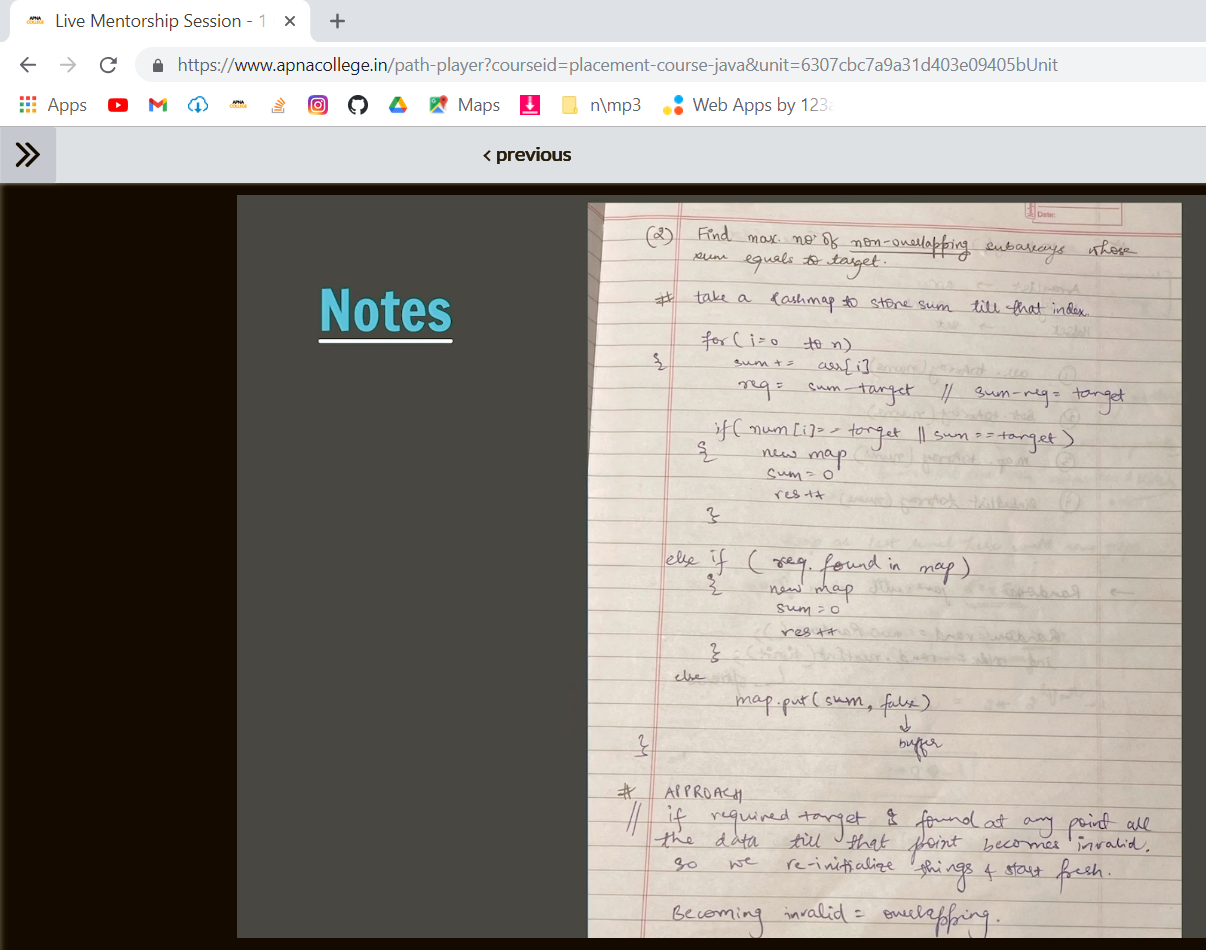 Live Mentorship Session - 1
https://www.apnacollege.in/path-player?courseid=placement-course-java&unit=6307cbc7a9a31d403e09405bUnit
Apps
APNA COLLEGE
Maps
n\mp3
Web Apps by 123
< previous
Notes
Date:
(2) Find max. no of non-overlapping subarrays whose
sum equals to target.
# take a hashmap to store sum till that index.
for (i=0 to n)
{ sum += arr[i]
req = sum-target // sum-req = target
if( num[i]== target || sum == target )
{ new map
sum = 0
res++
}
else if ( req. found in map)
{ new map
sum = 0
res++
}
else
map.put(sum, false)
↓
buffer
}
# APPROACH
// if required target is found at any point all
the data till that point becomes invalid.
so we re-initialize things & start fresh.
Becoming invalid = overlapping.